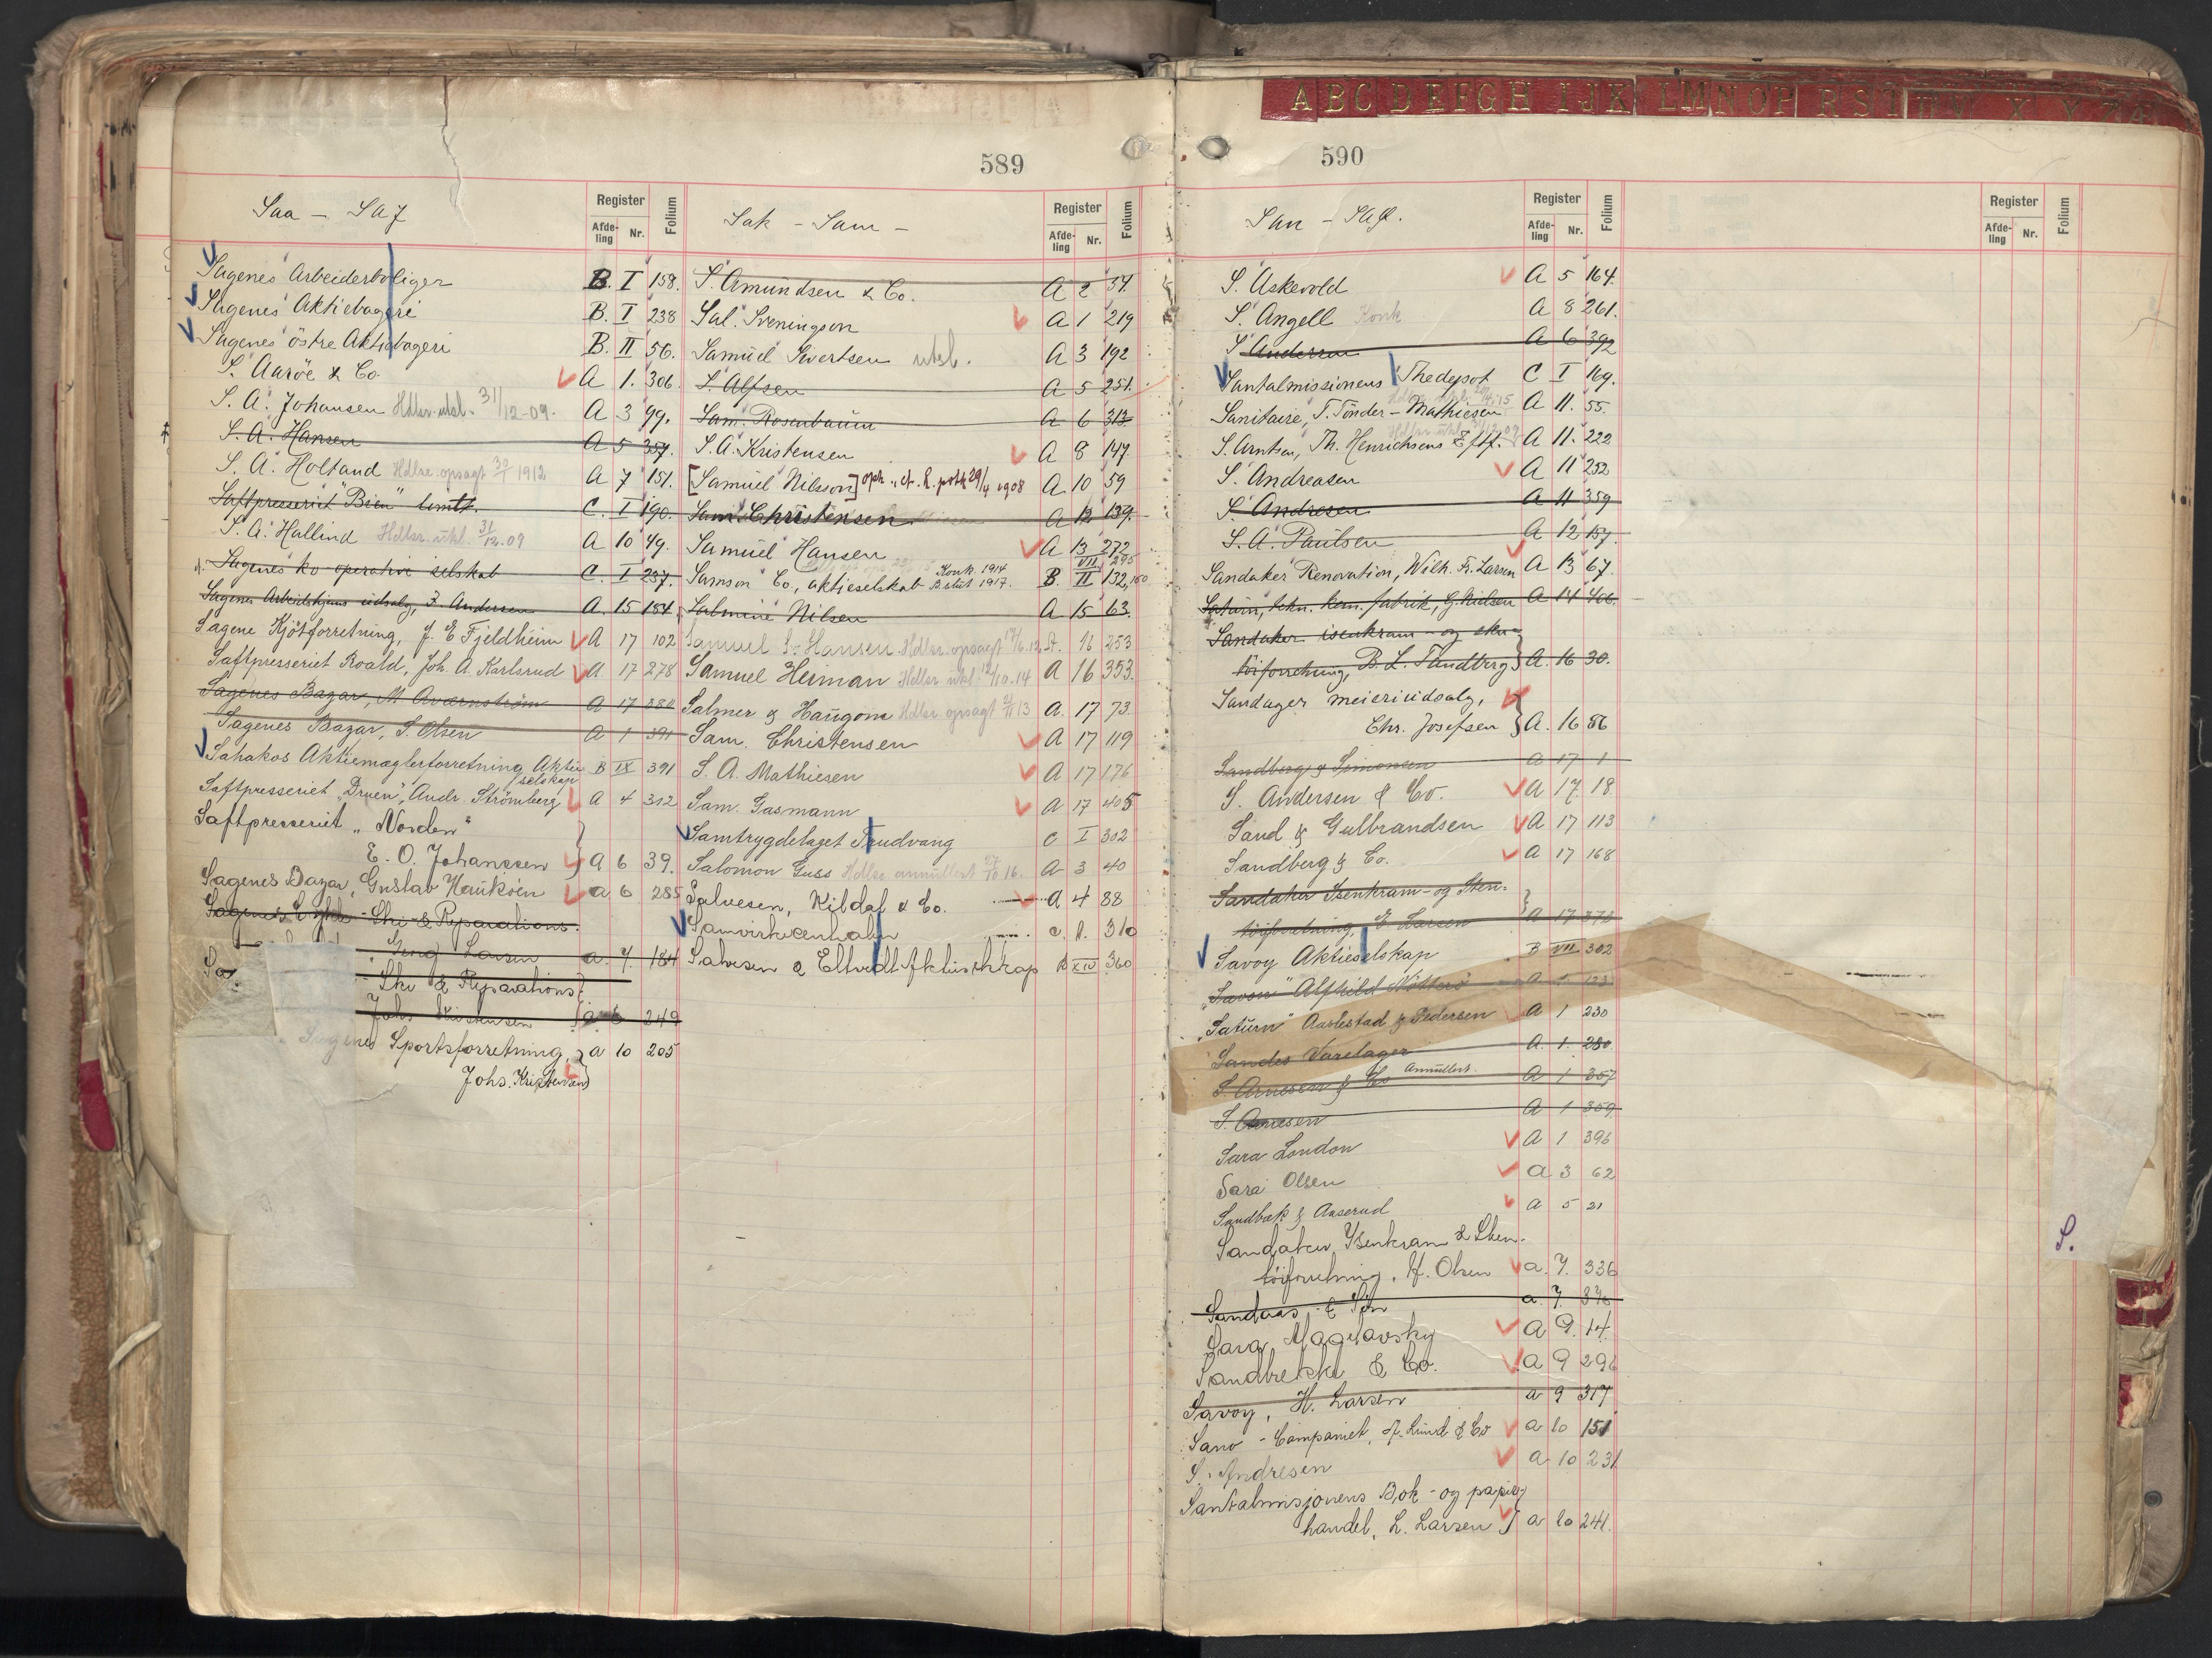 A B C D E F G H I J K L M N O P R S T U V X Y Z Æ
589
Saa – Saj
Register
Afde-ling Nr. Folium
Sagenes Arbeiderboliger B. I 158.
Sagenes Aktiebageri B. I 238
Sagenes östre Aktiebageri B. II 56.
S. Aaröe & Co. A 1. 306.
S. A. Johansen Hdlsr. utsl. 31/12-09. A 3 99.
S. A. Hansen A 5 357.
S. A. Holtand Hdlse. opsagt 30/1 1912 A 7 151.
Saftpresseriet "Bien" limtt. C. I 190.
S. A. Hallind Hdlsr. utsl. 31/12.09 A 10 49.
Sagenes ko-operative selskab C. I 237.
Sagenes Arbeidshjems udsalg, F. Andersen A. 15 154
Sagene Kjötforretning, J. E Fjeldheim A 17 102
Saftpresseriet Roald, Joh. A. Karlsrud A. 17 278
Sagenes Bazar, M. Avdernström A 17 380
Sagenes Bazar, S. Olsen A 1 391
Sahakos Aktiemæglerforretning Aktieselskap B IX 391
Saftpresseriet "Druen", Andr. Strömberg A 4 312
Saftpresseriet "Norden"
E. O. Johanssen A 6 39.
Sagenes Bazar, Gustav Haukøen a 6 285
Sagenes Cykle- Ski- & Reparations-
Larsen a. 7. 184
Sa
Ski & Reparations
Johs. Kristensen a 6 249
Sagenes Sportsforretning, a 10 205
Johs. Kristensen
Sak – Sam –
Register
Afde-ling Nr. Folium
S. Amundsen & Co. A 2 54.
Sal. Sveningson A 1 219
Samuel Sivertsen utsl. A 3 192
S. Alfsen A 5 251.
Sam. Rosenbaum A 6 313
S. A. Kristensen A 8 147.
[Samuel Nilsson] 29/4 1908 A. 10 59
Sam. Christensen A 12 139.
Samuel Hansen A 13 272
VII 295
Samson Co., aktieselskab Konk. 1914 B slut 1917. B. II 132, 150
Salmine Nilsen A 15 63.
Samuel S. Hansen Hdlsr. opsagt 17/6.12 A. 16 253
Samuel Heiman Hdlsr utsl. 12/10.14 A 16 353.
Salmer & Haugom Hdlsr. opsagt 2/11 13 A. 17 73.
Sam. Christensen A 17 119
S. A. Mathiesen A 17 176
Sam. Gasmann A 17 405
Samtrygdelaget Trudvang C I 302
Salomon Guss Hdlse annullert 27/10 16. A 3 40
Salvesen, Kildal & Co. A 4 88
Samvirkecentralen c. I. 310
Salvesen & Eltvedt Aktieselskap B XIV 360
590
San – Saø.
Register
Afde-ling Nr. Folium
S. Askevold A 5 164.
S. Angell Konk A 8 261.
S. Anderson A 6 392
Santalmissionens Thedepot C I 169.
Sanitaire, T. Tönder-Mathiesen A 11. 55.
S. Arntsen, Th. Henrichsens Eftf. A 11. 222
S. Andreasen A 11 252
S. Andresen A 11 359
S. A. Paulsen A 12 157.
Sandaker Renovation, Wilh. Fr. Larsen A 13 67.
Saturn, tekn. kem. fabrik, G. Nielsen A 14 466.
Sandaker isenkram- og sten-
töiforretning, B. L. Tandberg A. 16 30.
Sandager meieriudsalg,
Chr. Josefsen A. 16 86
Sandberg & Simonsen A 17 1
S. Andersen & Co. A 17. 18.
Sand & Gulbrandsen A 17 113
Sandberg & Co. A 17 168
Sandaker Isenkram- og Sten-
töiforretning, E. Larsen A 17 372
Savoy Aktieselskap B VII 302
"Savon" Alfhild Nötterö A 1 123
"Saturn" Aarlestad & Pedersen A 1 230
Sandes Varelager A. 1. 280.
S. Arnesen & Co Annullert. A 1 357
S. Arnesen A 1 359
Sara London A 1 396
Sara Olsen a 3 62
Sandbæk & Aaserud a 5 21
Sandaker Isenkram & Sten-
töiforretning, H. Olsen a. 7. 336
Sandaas & Sön a. 7. 376
Sara Magelavsky a 9. 14.
Sandbrekke & Co. a 9 296
Savoy, H. Larsen a 9 317
Sano-Companiet, A. Lund & Co a 10 151
S. Andresen a 10 231
Santalmisjonens Bok- og papir-
handel, L. Larsen a 10 241.
Register
Afde-ling Nr. Folium
S.